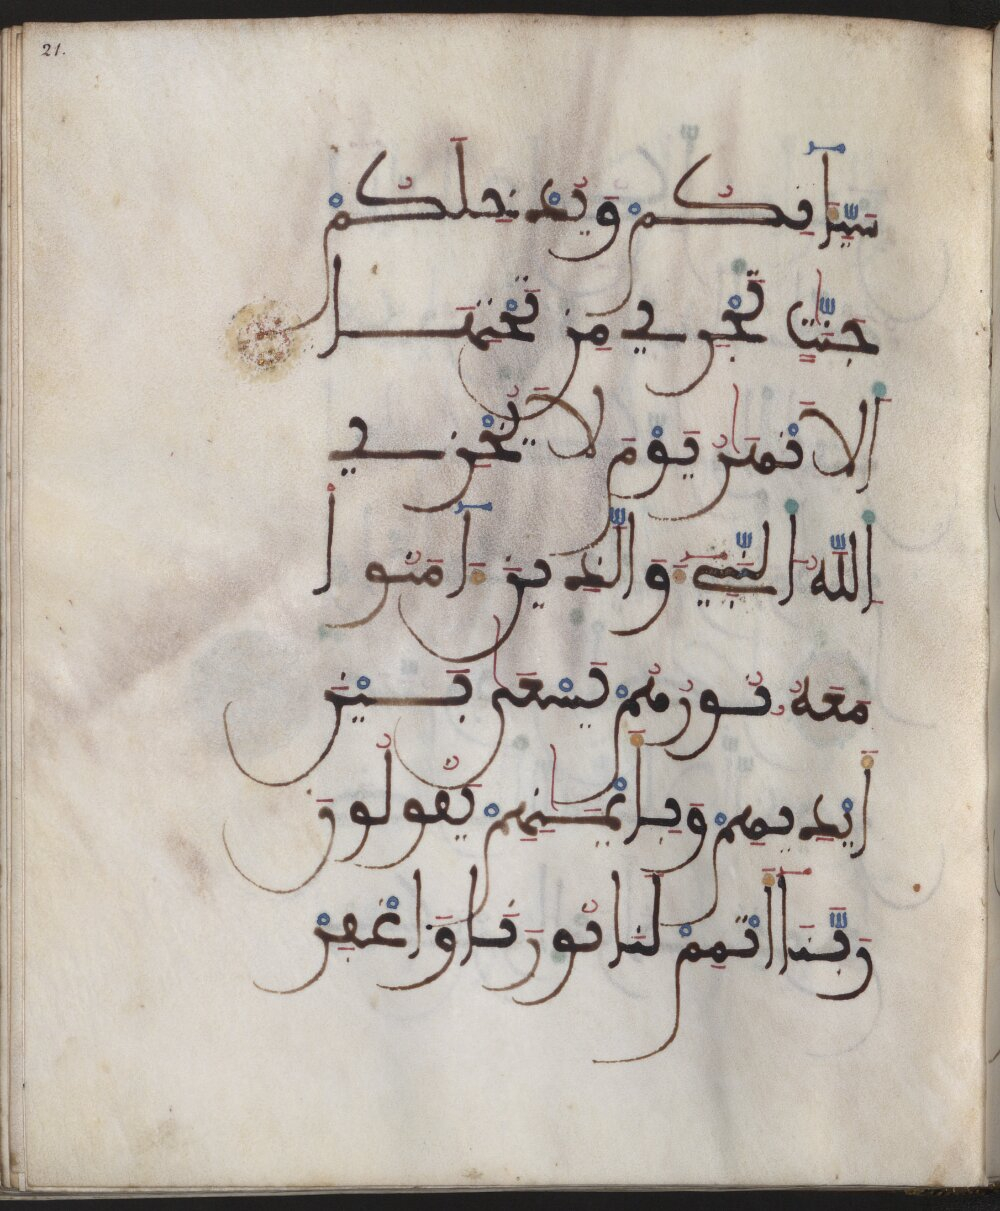 21.
سَيِّـَٔاتِكُمْ وَيُدْخِلَكُمْ
جَنَّٰتٖ تَجْرِے مِن تَحْتِهَا
اَ۬لَانْهَٰرُ يَوْمَ لَا يُخْزِے
اِ۬للَّهُ اُ۬لنَّبِيٓءَ وَالذِينَ ءَامَنُوا
مَعَهُۥ نُورُهُمْ يَسْعَىٰ بَيْنَ
أَيْدِيهِمْ وَبِأَيْمَٰنِهِمْ يَقُولُونَ
رَبَّنَآ أَتْمِمْ لَنَا نُورَنَا وَاغْفِرْ